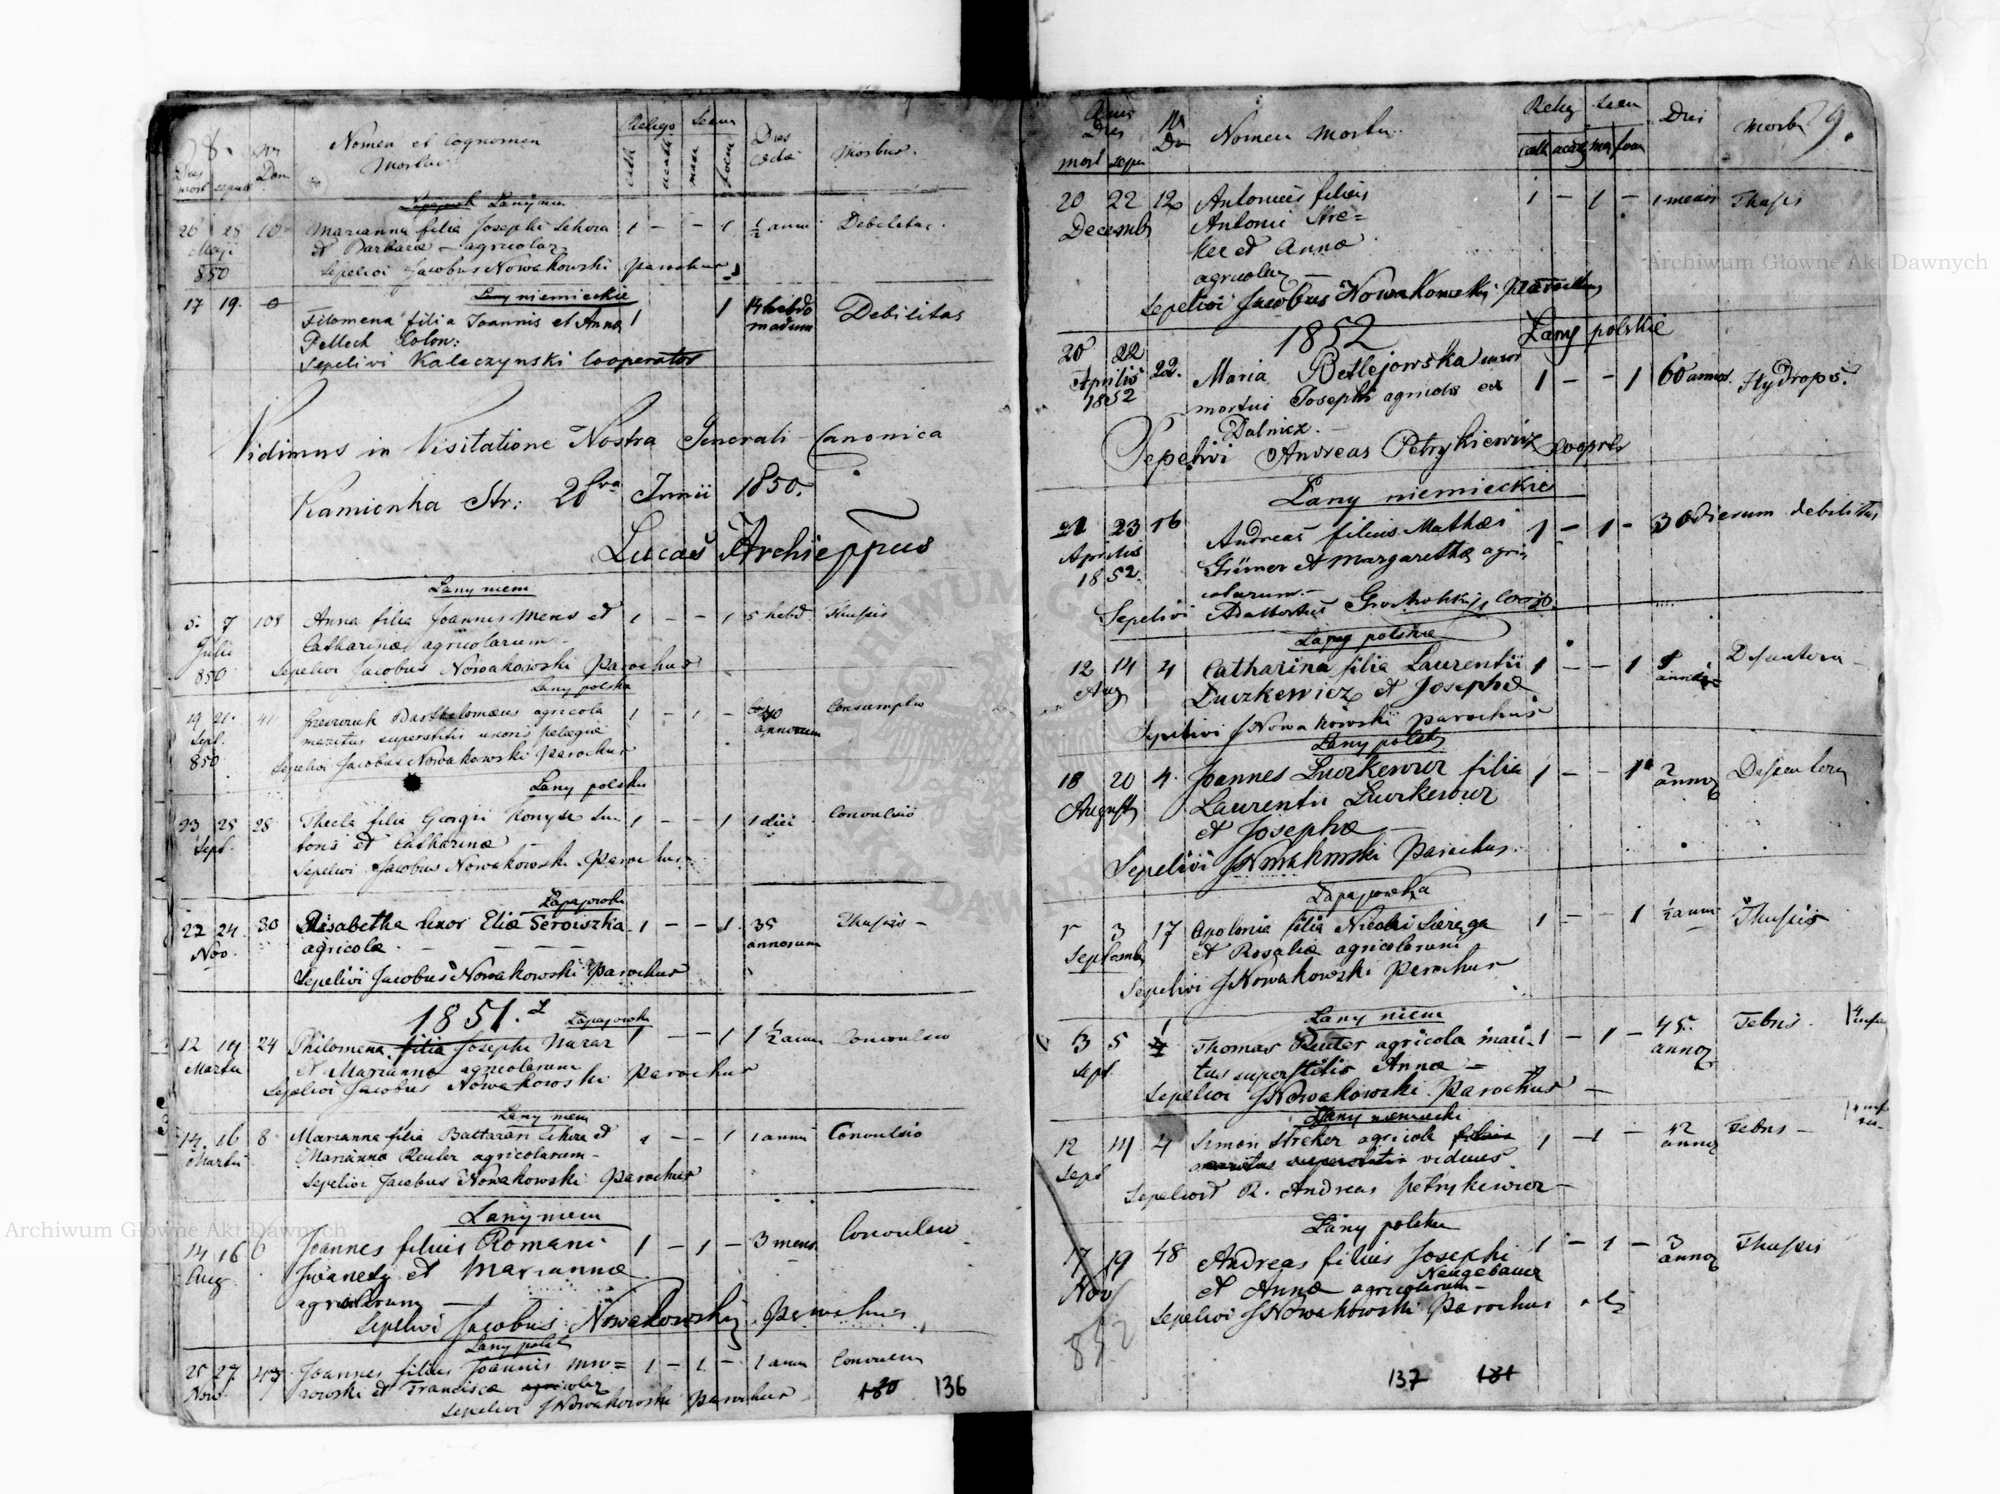 Nomen et cognomen
Mortui
Religo Sexus
Dies
Morbus.
Lany niem
26 28 10 Marianna filia Josephi Sekora 1 - - 1 ½ anni Debilitas.
Maji et Barbarae - agricolar
850 Sepelivi Jacobus Nowakowski Parochus
Lany niemieckie
17 19. 0 Filomena filia Joannis et Anna 1 1 14 hebdo Debilitas
Pelloch Colon: madum
Sepelivi Kaleczynski Cooperator
Vidimus in Visitatione Nostra Generali Canonica
Kamionka Str: 28va Junii 1850.
Lucas Archieppus
Lany niem
5. 7 108 Anna filia Joannis Mens et 1 - - 1 5 hebd. Thusis
Julii Catharinae agricolarum.
850 Sepelivi Jacobus Nowakowski Parochus
Lany polska
19 21. 41 Bartholomaeus agricola 1 - 1 - Consumptio
Sept. maritus superstitis uxoris pelagiae annorum
850 Sepelivi Jacobus Nowakowski Parochus
Lany polska
23 25 28 Thecla filia Georgii Konysz Su- 1 - - 1 1 diei Convulsio
Sept. toris et Catharinae
Sepelivi Jacobus Nowakowski Parochus
Lapajowka
22 24. 30 Elisabetha uxor Eliae Feroiszka 1 - - 1. 35 Thusis -
Nov. agricolae annorum
Sepelivi Jacobus Nowakowski Parochus
1851. Lapajowka
12 14 24 Philomena filia Josephi Nazar 1 - - 1 1 ½ anni Convulsio
Martii et Marianna agricolarum
Sepelivi Jacobus Nowakowski Parochus
Lany niem
14. 16 8 Marianna filia Baltazari Sekora et 1 - - 1 1 anni Convulsio
Martii Marianna Reuter agricolarum -
Sepelivi Jacobus Nowakowski Parochus
Lany niem
14 16 6 Joannes filius Romani 1 - 1 - 3 mens. Convulsio
Aug. et Mariannae
agricolarum
Sepelivi Jacobus Nowakowski Parochus
Lany polsk
25 27. 47 Joannes filius Joannis Mro= 1 - 1 - 1 anni Convulsio
Nov. zowski et Francisca agricolar
Sepelivi JNowakowski Parochus
180 136
Dies Nr Nomen Mortui Relig Sexus Dies Morb 79.
mort sepu
20 22 12 Antonius filius 1 - 1 - 1 mensis Thusis
Decemb Antonii Stre=
ker et Anna
agricolar
Sepelivi Jacobus Nowakowski Parochus
1852 Lany polskie
20 22 22. Maria Betlejowska uxor 1 - - 1 60 annor. Hydrops.
Aprilis mortui Josephi agricola ex
1852 Dalnicz. -
Sepelivi Andreas Petrykiewicz Cooprtr
Lany niemieckie
21 23 16 Andreas filius Mathaei 1 - 1 - 30 dierum debilitas
Aprilis Grümer et Margarethae agri
1852. colarum. -
Sepelivi
Lany polskie
12 14 4 Catharina filia Laurentii 1 - - 1 Desenteria -
Aug Lurkewicz et Josepha
Sepelivi JNowakowski parochus
Lany polsk
18 20 4. Joannes Lurkewicz filia 1 - - 1 2 Desenteria
Augusti Laurentii Lurkewicz annor
et Josepha
Sepelivi JNowakowski Parochus.
Lapajowka
1 3 17 Apolonia filia Nicolai Sierega 1 - - 1 ½ anni Thusis
Septemb et Rosalia agricolarum
Sepelivi JNowakowski Parochus
Lany niem
3 5 Thomas Reuter agricola mari- 1 - 1 - 45. Febris.
Sept tus superstitis Annae - annor
Sepelivi JNowakowski Parochus -
Lany niemiecki
12 14 4 Simon Streker agricola filius 1 - 1 - 42 Febris -
Sept maritus superstitis viduus. annor
Sepelivit R. Andreas Petrykiewicz -
Lany polska
17 19 48 Andreas filius Josephi 1 - 1 - 3 Thusis
Nov Neugebauer annor
et Annae agricolarum -
Sepelivi JNowakowski Parochus
852
137 181
Archiwum Główne Akt Dawnych
Archiwum Główne Akt Dawnych